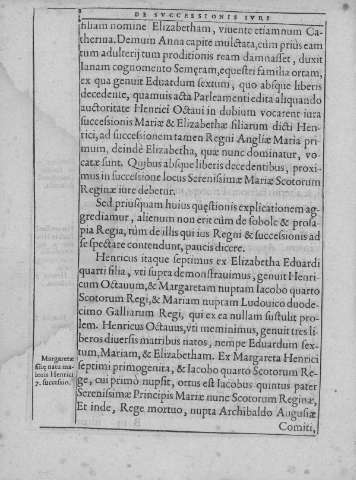 DE SVCCESSIONIS IVRE
filiam nomine Elizabetham, viuente etiamnum Ca-
therina. Demum Anna capite mulctata, cùm priùs eam
tum adulterij tum proditionis ream damnasset, duxit
Ianam cognomento Semęram, equestri familia ortam,
ex qua genuit Eduardum sextum, quo absque liberis
decedente, quamuis acta Parleamenti edita aliquando
auctoritate Henrici Octaui in dubium vocarent iura
successionis Mariæ & Elizabethæ filiarum dicti Hen-
rici, ad successionem tamen Regni Angliæ Maria pri-
mum, deindè Elizabetha, quæ nunc dominatur, vo-
catæ sunt. Quibus absque liberis decedentibus, proxi-
mus in successione locus Serenissimæ Mariæ Scotorum
Reginæ iure debetur.
Sed priusquam huius quęstionis explicationem ag-
grediamur, alienum non erit cùm de sobole & prosa-
pia Regia, tùm de illis qui ius Regni & successionis ad
se spectare contendunt, paucis dicere.
Henricus itaque septimus ex Elizabetha Eduardi
quarti filia, vti supra demonstrauimus, genuit Henri-
cum Octauum, & Margaretam nuptam Iacobo quarto
Scotorum Regi, & Mariam nuptam Ludouico duode-
cimo Galliarum Regi, qui ex ea nullam sustulit pro-
lem. Henricus Octauus, vti meminimus, genuit tres li-
beros diuersis matribus natos, nempe Eduardum sex-
tum, Mariam, & Elizabetham. Ex Margareta Henrici
septimi primogenita, & Iacobo quarto Scotorum Re-
ge, cui primò nupsit, ortus est Iacobus quintus pater
Serenissimæ Principis Mariæ nunc Scotorum Reginæ,
Et inde, Rege mortuo, nupta Archibaldo Augusiæ
Comiti,
Margaretæ
filię natu ma-
ioris Henrici
7. successio.